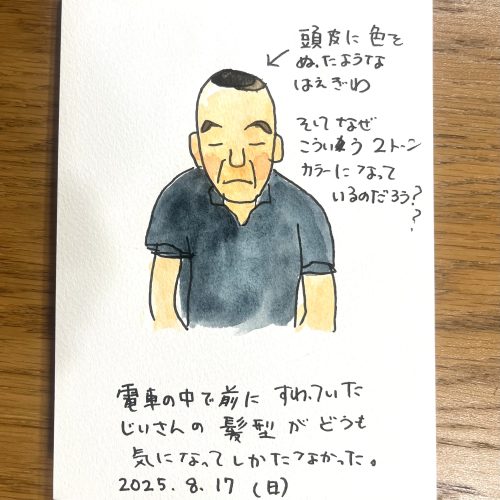 頭皮に色を
ぬったような
はえぎわ
そしてなぜ
こういう2トーン
カラーになって
いるのだろう?
?
電車の中で前にすわっていた
じいさんの髪型がどうも
気になってしかたなかった。
2025.8.17(日)